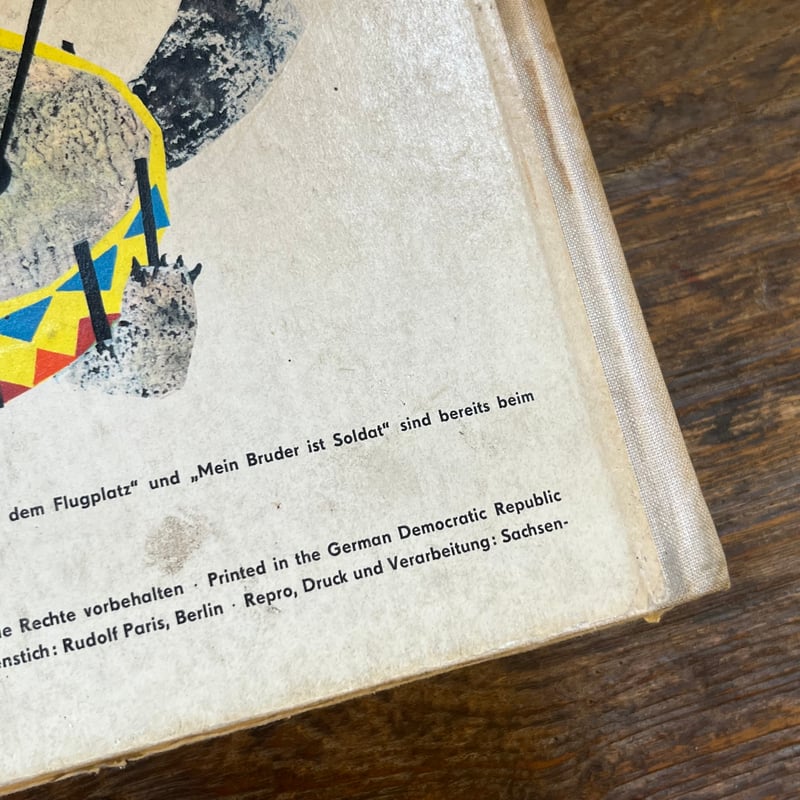 dem Flugplatz“ und „Mein Bruder ist Soldat“ sind bereits beim
Rechte vorbehalten · Printed in the German Democratic Republic
enstich: Rudolf Paris, Berlin · Repro, Druck und Verarbeitung: Sachsen-